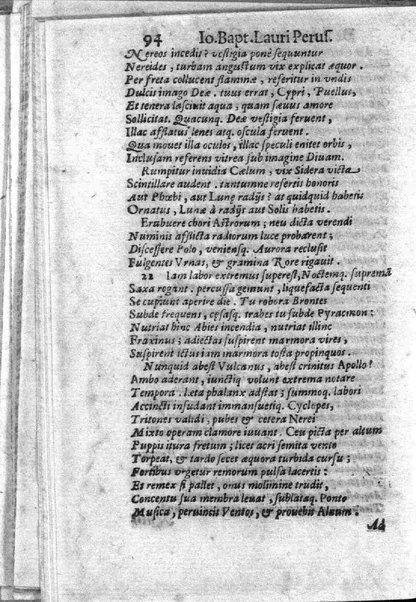 94 Io.Bapt.Lauri Perus.
Nereos incedis? vestigia ponè sequuntur
Nereides, turbam angustum vix explicat æquor.
Per freta collucent flammæ, referitur in vndis
Dulcis imago Deæ. tuus errat, Cypri, Puellus,
Et tenera lasciuit aqua; quam sæuus amore
Sollicitat. Quacunq. Deæ vestigia feruent,
Illac afflatus lenes atq. oscula feruent.
Qua mouet illa oculos, illac speculi enitet orbis,
Inclusam referens vitrea sub imagine Diuam.
Rumpitur inuidia Cælum; vix Sidera victa
Scintillare audent. tantumne refertis honoris
Aut Phœbi, aut Lunę radijs? at quidquid habetis
Ornatus, Lunæ à radijs aut Solis habetis.
Erubuere chori Astrorum; neu dicta verendi
Numinis afflicta radiorum luce probarent;
Discessere Polo, veniensq. Aurora reclusit
Fulgentes Vrnas, & gramina Rore rigauit.
22 Iam labor extremus superest, Noctemq. supremā
Saxa rogant. percussa gemunt, liquefacta sequenti
Se cupiunt aperire die. Tu robora Brontes
Subde frequens, cęsasq. trabes tu subde Pyracmon:
Nutriat hinc Abies incendia, nutriat illinc
Fraxinus; adiectas suspirent marmora vires,
Suspirent ictus iam marmora tosta propinquos.
Nunquid abest Vulcanus, abest crinitus Apollo?
Ambo aderant, iunctiq volunt extrema notare
Tempora. læta phalanx adstat; summoq. labori
Accincti insudant immansuetiq. Cyclopes,
Tritones validi, pubes & cetera Nerei
Mixto operam clamore iuuant. Ceu picta per altum
Puppis itura fretum; licet acri semita vento
Torpeat, & tardo secet æquora turbida cursu;
Fortibus vrgetur remorum pulsa lacertis:
Et remex si pallet, onus molimine trudit,
Concentu sua membra leuat, sublataq. Ponto
Musica, peruincit Ventos, & prouehit Alnum.
Ad